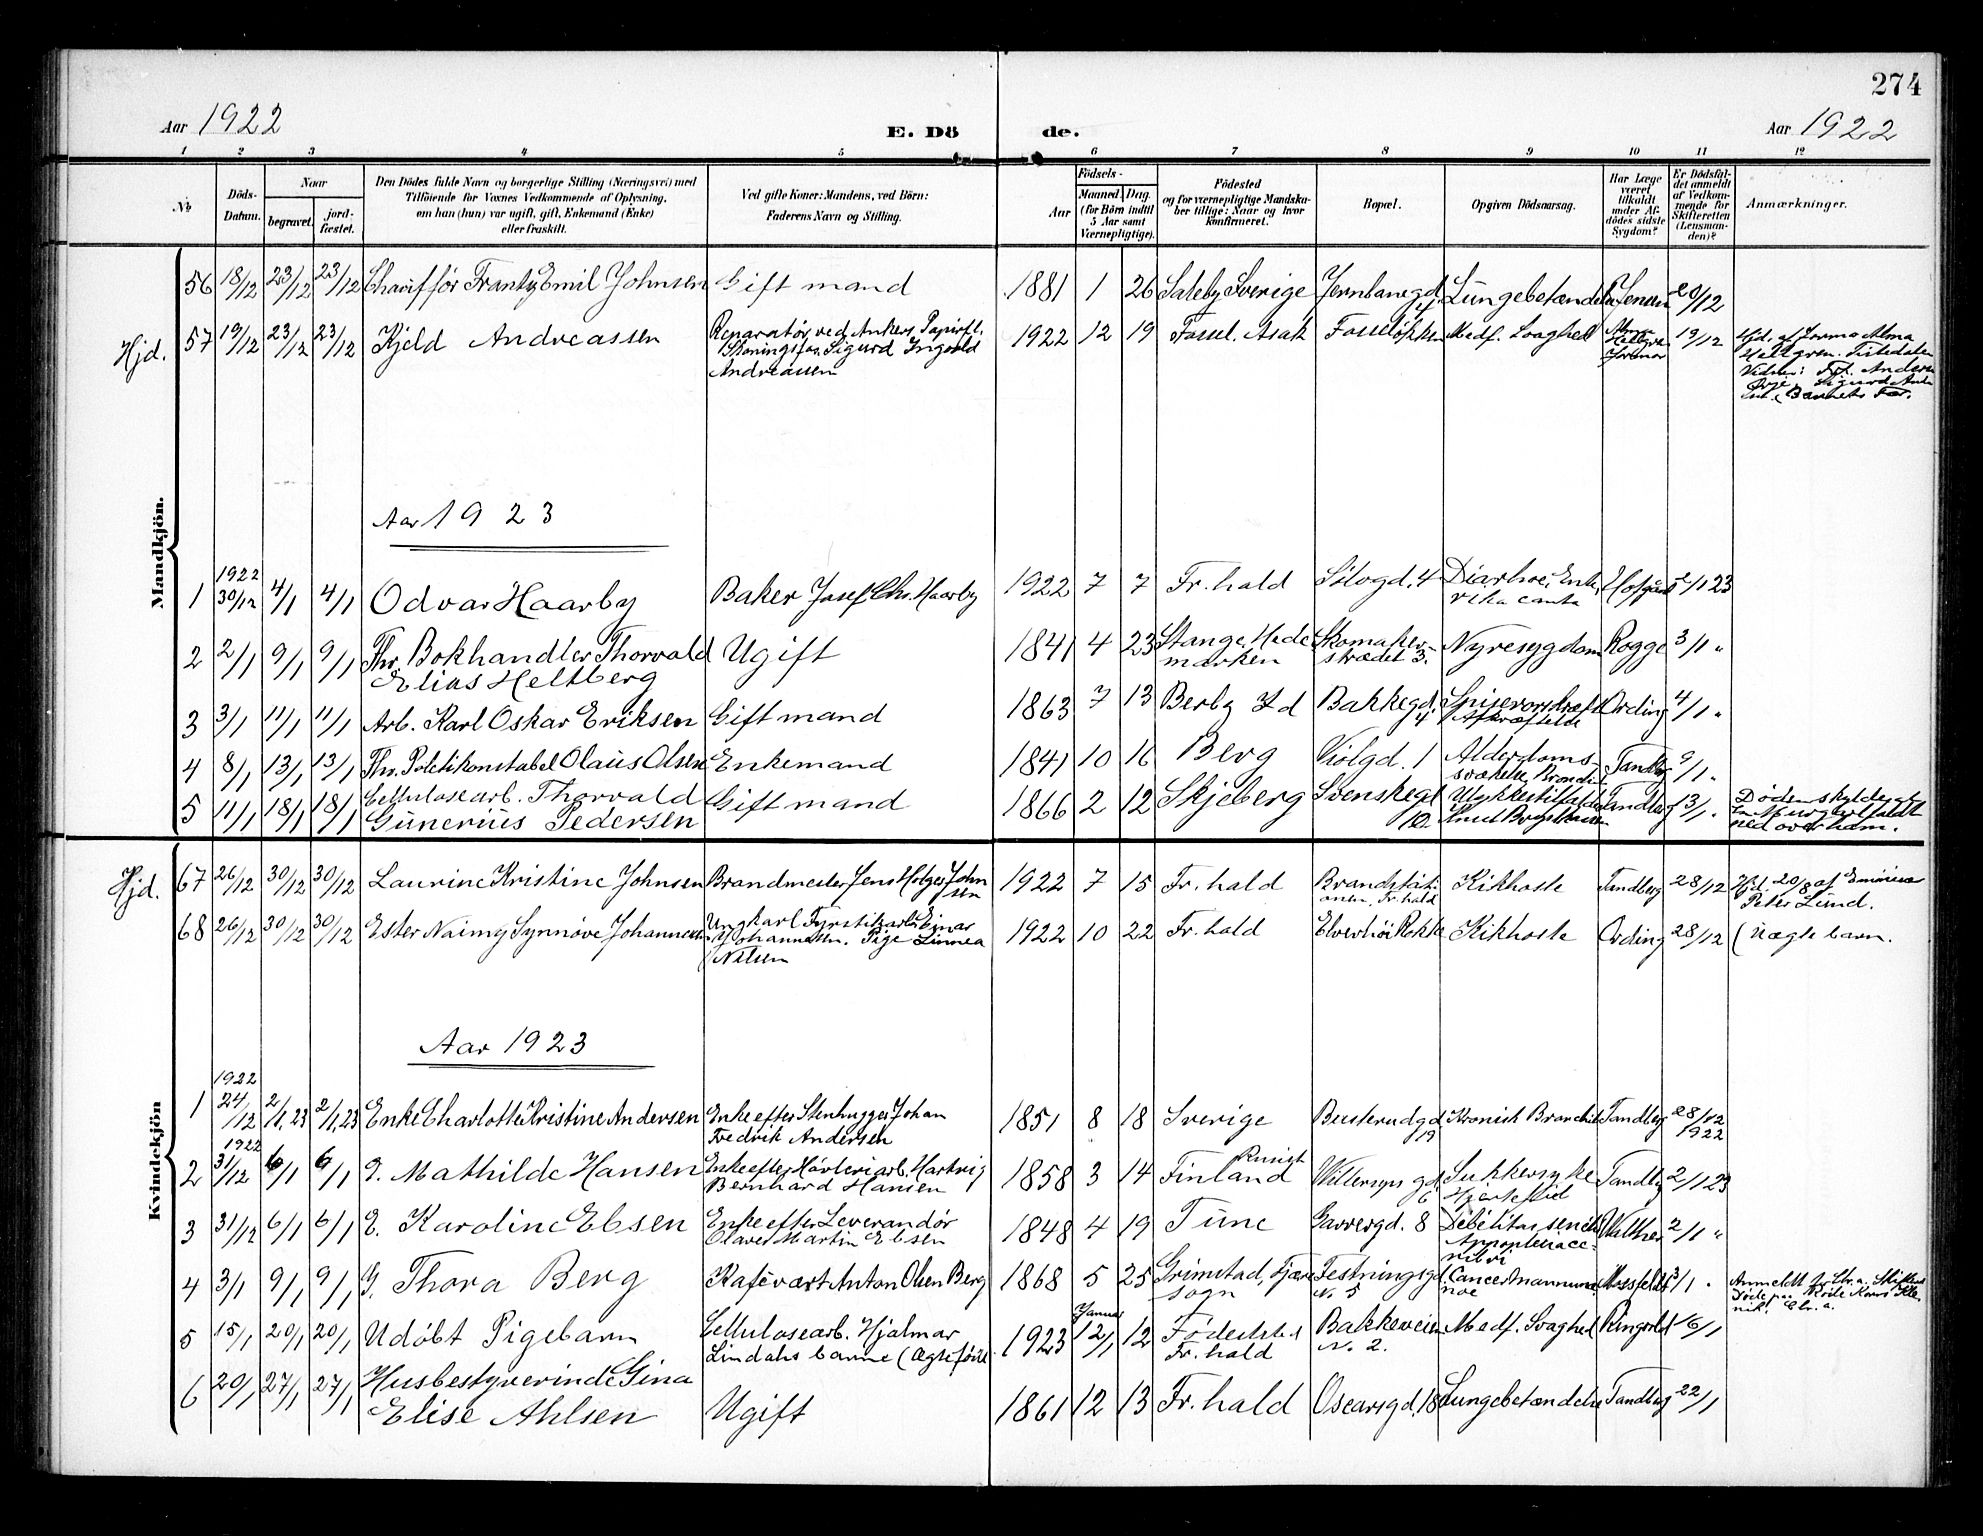 274
Aar 1922 E. Dö de. Aar 1922
1 2 3 4 5 6 7 8 9 10 11 12
No
Döds-Datum.
Naar
begravet.
jord-fæstet.
Den Dödes fulde Navn og borgerlige Stilling (Næringsvei) med
Tilföiende for Voxnes Vedkommende af Oplysning,
om han (hun) var ugift, gift, Enkemand (Enke)
eller fraskilt.
Ved gifte Koner: Mandens, ved Börn:
Faderens Navn og Stilling.
Födsels-
Aar
Maaned. Dag.
(for Börn indtil
5 Aar samt
Værnepligtige).
Födested
og for værnepligtige Mandska-
ber tillige: Naar og hvor
konfirmeret.
Bopæl.
Opgiven Dödsaarsag.
Har Læge
været
tilkaldt
under Af-
dödes sidste
Sygdom?
Er Dödsfal-
det anmeldt
af Vedkom-
mende for
Skifteretten
(Lensman-
den)?
Anmærkninger.
Mandkjön.
56 18/12 23/12 23/12 Chaufför Frantz Emil Johnsen Gift mand 1881 1 26 Saleby Sverige Jernbanegd. Lungebetændelse 20/12
Hjd. 57 19/12 23/12 23/12 Kjeld Andreassen Reparatør ved Ankers Papirf.
Sigurd Ingvald
Andreassen
1922 12 19 Asak Medf. Svaghed 19/12
Hjd. af Jormo Alma
Hallgren. Tistedalen
Vidner:
Sigurd
Barnets Far.
Aar 1923
1 1922 30/12 4/1 4/1 Odvar Haarby Baker Josef Chr. Haarby 1922 7 7 Fr.hald Sølvgd. 4 Diarhoe, 2/1 23
2 2/1 9/1 9/1 Fhv. Bokhandler Thorvald
Elias Heltberg
Ugift 1841 4 23 Stange Hede-
marken
Skomaker-
strædet 3.
Nyresygdom Rogge 3/1 "
3 3/1 11/1 11/1 Arb. Karl Oskar Eriksen Gift mand 1863 7 13 Berby Id Bakkegd.
4
Afkræftelse
Ording 4/1 "
4 8/1 13/1 13/1 Fhv. Politikonstabel Olaus Olsen Enkemand 1841 10 16 Berg Violgd. 1 Alderdoms-
svakelse
Tandberg 9/1 "
5 11/1 18/1 18/1 Cellulosearb. Thorvald
Gunerius Pedersen
Gift mand 1866 2 12 Skjeberg Svenskegd.
12
Ulykkestilfælde
Knust Brystkasse
Tandberg 13/1 "
Døden skyldes at
ned over ham.
Kvindekjön
Hjd. 67 26/12 30/12 30/12 Laurine Kristine Johnsen Brandmester Jens Holger John-
sen
1922 7 15 Fr.hald Brandstati-
onen, Fr.hald
Kikhoste Tandberg 28/12 Hjd. 20/8 af
Peter Lund.
68 26/12 30/12 30/12 Ester Naimy Synnøve Johannesen Ungkarl Fyrstikarb. Einar
Johannesen. Pige Linnea
Nilsen
1922 10 22 Fr.hald Elverhöi Rokke Kikhoste Ording 28/12 (Uægte barn.
Aar 1923
1 1922 24/12 2/1, 23 2/1, 23 Enke Charlotte Kristine Andersen Enke efter Stenhugger Johan
Fredrik Andersen
1851 8 18 Sverige Busterudgd.
19
Kronisk Bronchit Tandberg 28/12
1922
2 1922 31/12 6/1 6/1 E. Mathilde Hansen Enke efter Høvleriarb. Hartvig
Bernhard Hansen
1858 3 14 Russisk
Finland
6
Sukkersyke
Hjertefeil
Tandberg 2/1 23
3 31/12 6/1 6/1 E. Karoline Ebsen Enke efter Leverandör
Olaves Martin Ebsen
1848 4 19 Tune Garvergd. 8 Debilitas senilis
Walther 2/1 "
4 3/1 9/1 9/1 G. Thora Berg Kafévært Anton Olsen Berg 1868 5 25 Grimstad, Fjære
sogn
Festningsgd.
No. 5
Cancer mammae
3/1 "
Anmeldt
Døde paa Røde Kors Kli-
nik,
5 15/1 20/1 20/1 Udöbt Pigebarn Cellulosearb. Hjalmar
Lindahs barne (Ægteföde
1923 Januar
12/1 12 Födested
Fr.hald
Bakkeveien
No. 2.
Medf. Svaghed Ringvold 16/1
6 20/1 27/1 27/1 Husbestyrerinde Gina
Elise Ahlsen
Ugift 1861 12 13 Fr.hald Oscarsgd. 18 Lungebetændelse Tandberg 22/1